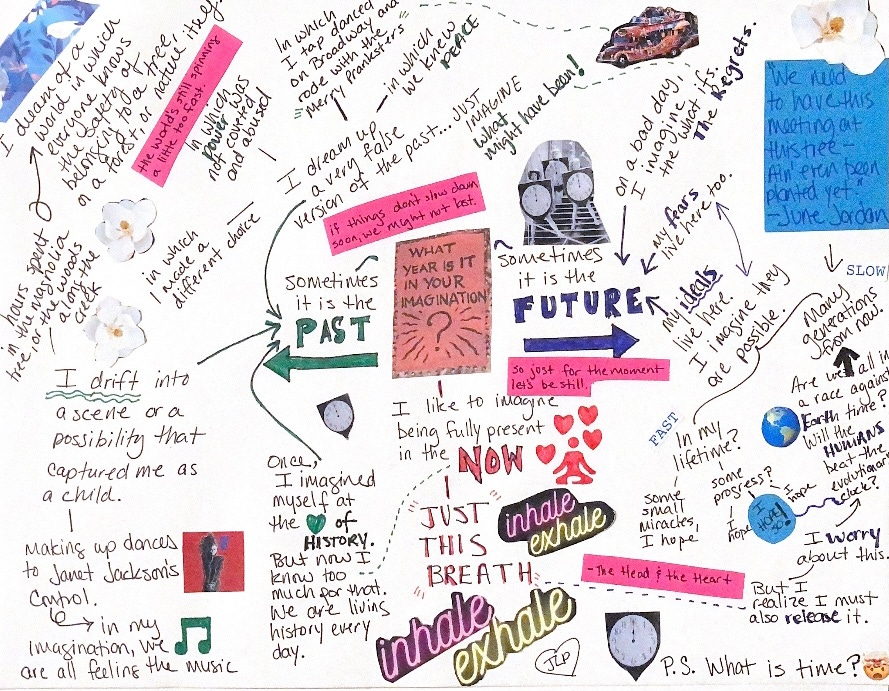 I dream of a
world in which
everyone knows
the safety of
belonging to a tree,
or a forest or nature itself.
the world's still spinning
a little too fast.
in which
power was
not coveted
and abused
In which
I tap danced
on Broadway and
rode with the
Merry Pranksters
in which
we knew
PEACE
I dream up
a very false
version of the past...
JUST
IMAGINE
What
might have been!
on a bad day,
I imagine
the what ifs.
The Regrets.
"We need
to have this
meeting at
this tree—
Ain' even been
planted yet."
-June Jordan
hours spent
in the magnolia
tree, or the woods
along the
creek
in which
I made a
different choice
if things don't slow down
soon, we might not last.
my fears
live here too.
sometimes
it is the
PAST
WHAT
YEAR IS IT
IN YOUR
IMAGINATION
?
sometimes
it is the
FUTURE
my ideals
live here.
I imagine they
are possible.
SLOW
Many
generations
from now.
so just for the moment
let's be still.
I drift into
a scene or a
possibility that
captured me as
a child.
I like to imagine
being fully present
in the NOW
FAST
In my
lifetime?
some
small
miracles,
I hope
some
progress?
I hope
I hope
I
HOPE
SO!
Are we all in
a race against
Earth time?
Will the
HUMANS
beat the
evolutionary
clock?
I worry
about this.
But I
realize I must
also release it.
Making up dances
to Janet Jackson's
Control.
in my
imagination, we
are all feeling the music
Once,
I imagined
myself at
the of
HISTORY.
But now I
know too
much for that.
We are living
history every
day.
JUST
THIS
BREATH
inhale
exhale
-The Head & the Heart
inhale
exhale
JLP
P.S. What is time?